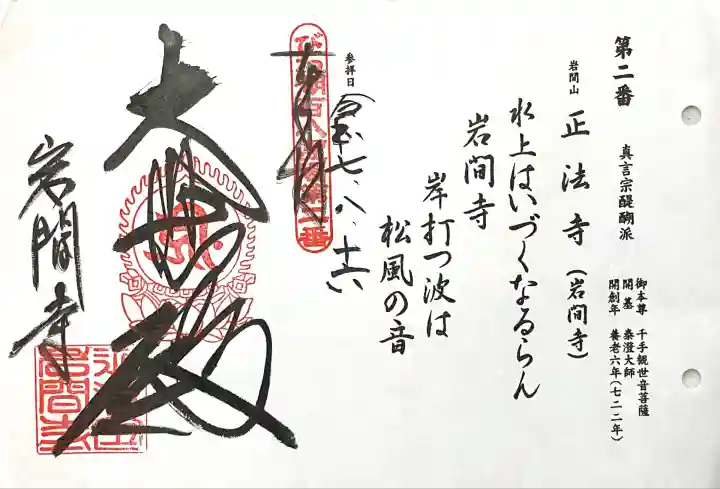 第二番
真言宗醍醐派
御本尊 千手観世音菩薩
開基 泰澄大師
開創年 養老六年(七二二年)
岩間山 正法寺(岩間寺)
水上はいづくなるらん
岩間寺
岸打つ波は
松風の音
参拝日
令和七、八、十六
奉拝
大悲殿
岩間寺